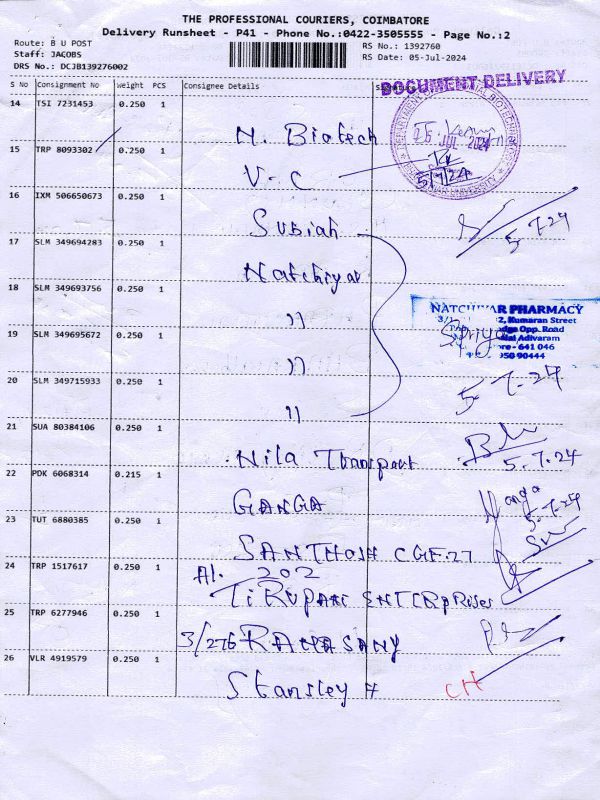 THE PROFESSIONAL COURIERS, COIMBATORE
Delivery Runsheet - P41 - Phone No.:0422-3505555 - Page No.:2
Route: B U POST
Staff: JACOBS
DRS No.: DCJB139276002
RS No.: 1392760
RS Date: 05-Jul-2024
DOCUMENT DELIVERY
S No Consignment No Weight PCS Consignee Details
14 TSI 7231453 0.250 1 N. Biotech
05 JUL 2024
5/7/24
15 TRP 8093302 0.250 1 V-C
16 IXM 506650673 0.250 1 Subiah
5.7.24
17 SLM 349694283 0.250 1 Natchiyar
18 SLM 349693756 0.250 1 "
NATCHIYAR PHARMACY
2, Kumaran Street
Opp. Road
Adivaram
641 046
90444
Spriya
19 SLM 349695672 0.250 1 "
20 SLM 349715933 0.250 1 "
5.7.24
21 SUA 80384106 0.250 1 Nila Transport
5.7.24
22 PDK 6068314 0.215 1 GANGA
Ganga
5.7.24
23 TUT 6880385 0.250 1 SANTHOSH CGF-27
24 TRP 1517617 0.250 1 A1. 202
TIRUPAKI ENTERPRISES
25 TRP 6277946 0.250 1 3/276 RAMASAMY
26 VLR 4919579 0.250 1 Stansley H
CH